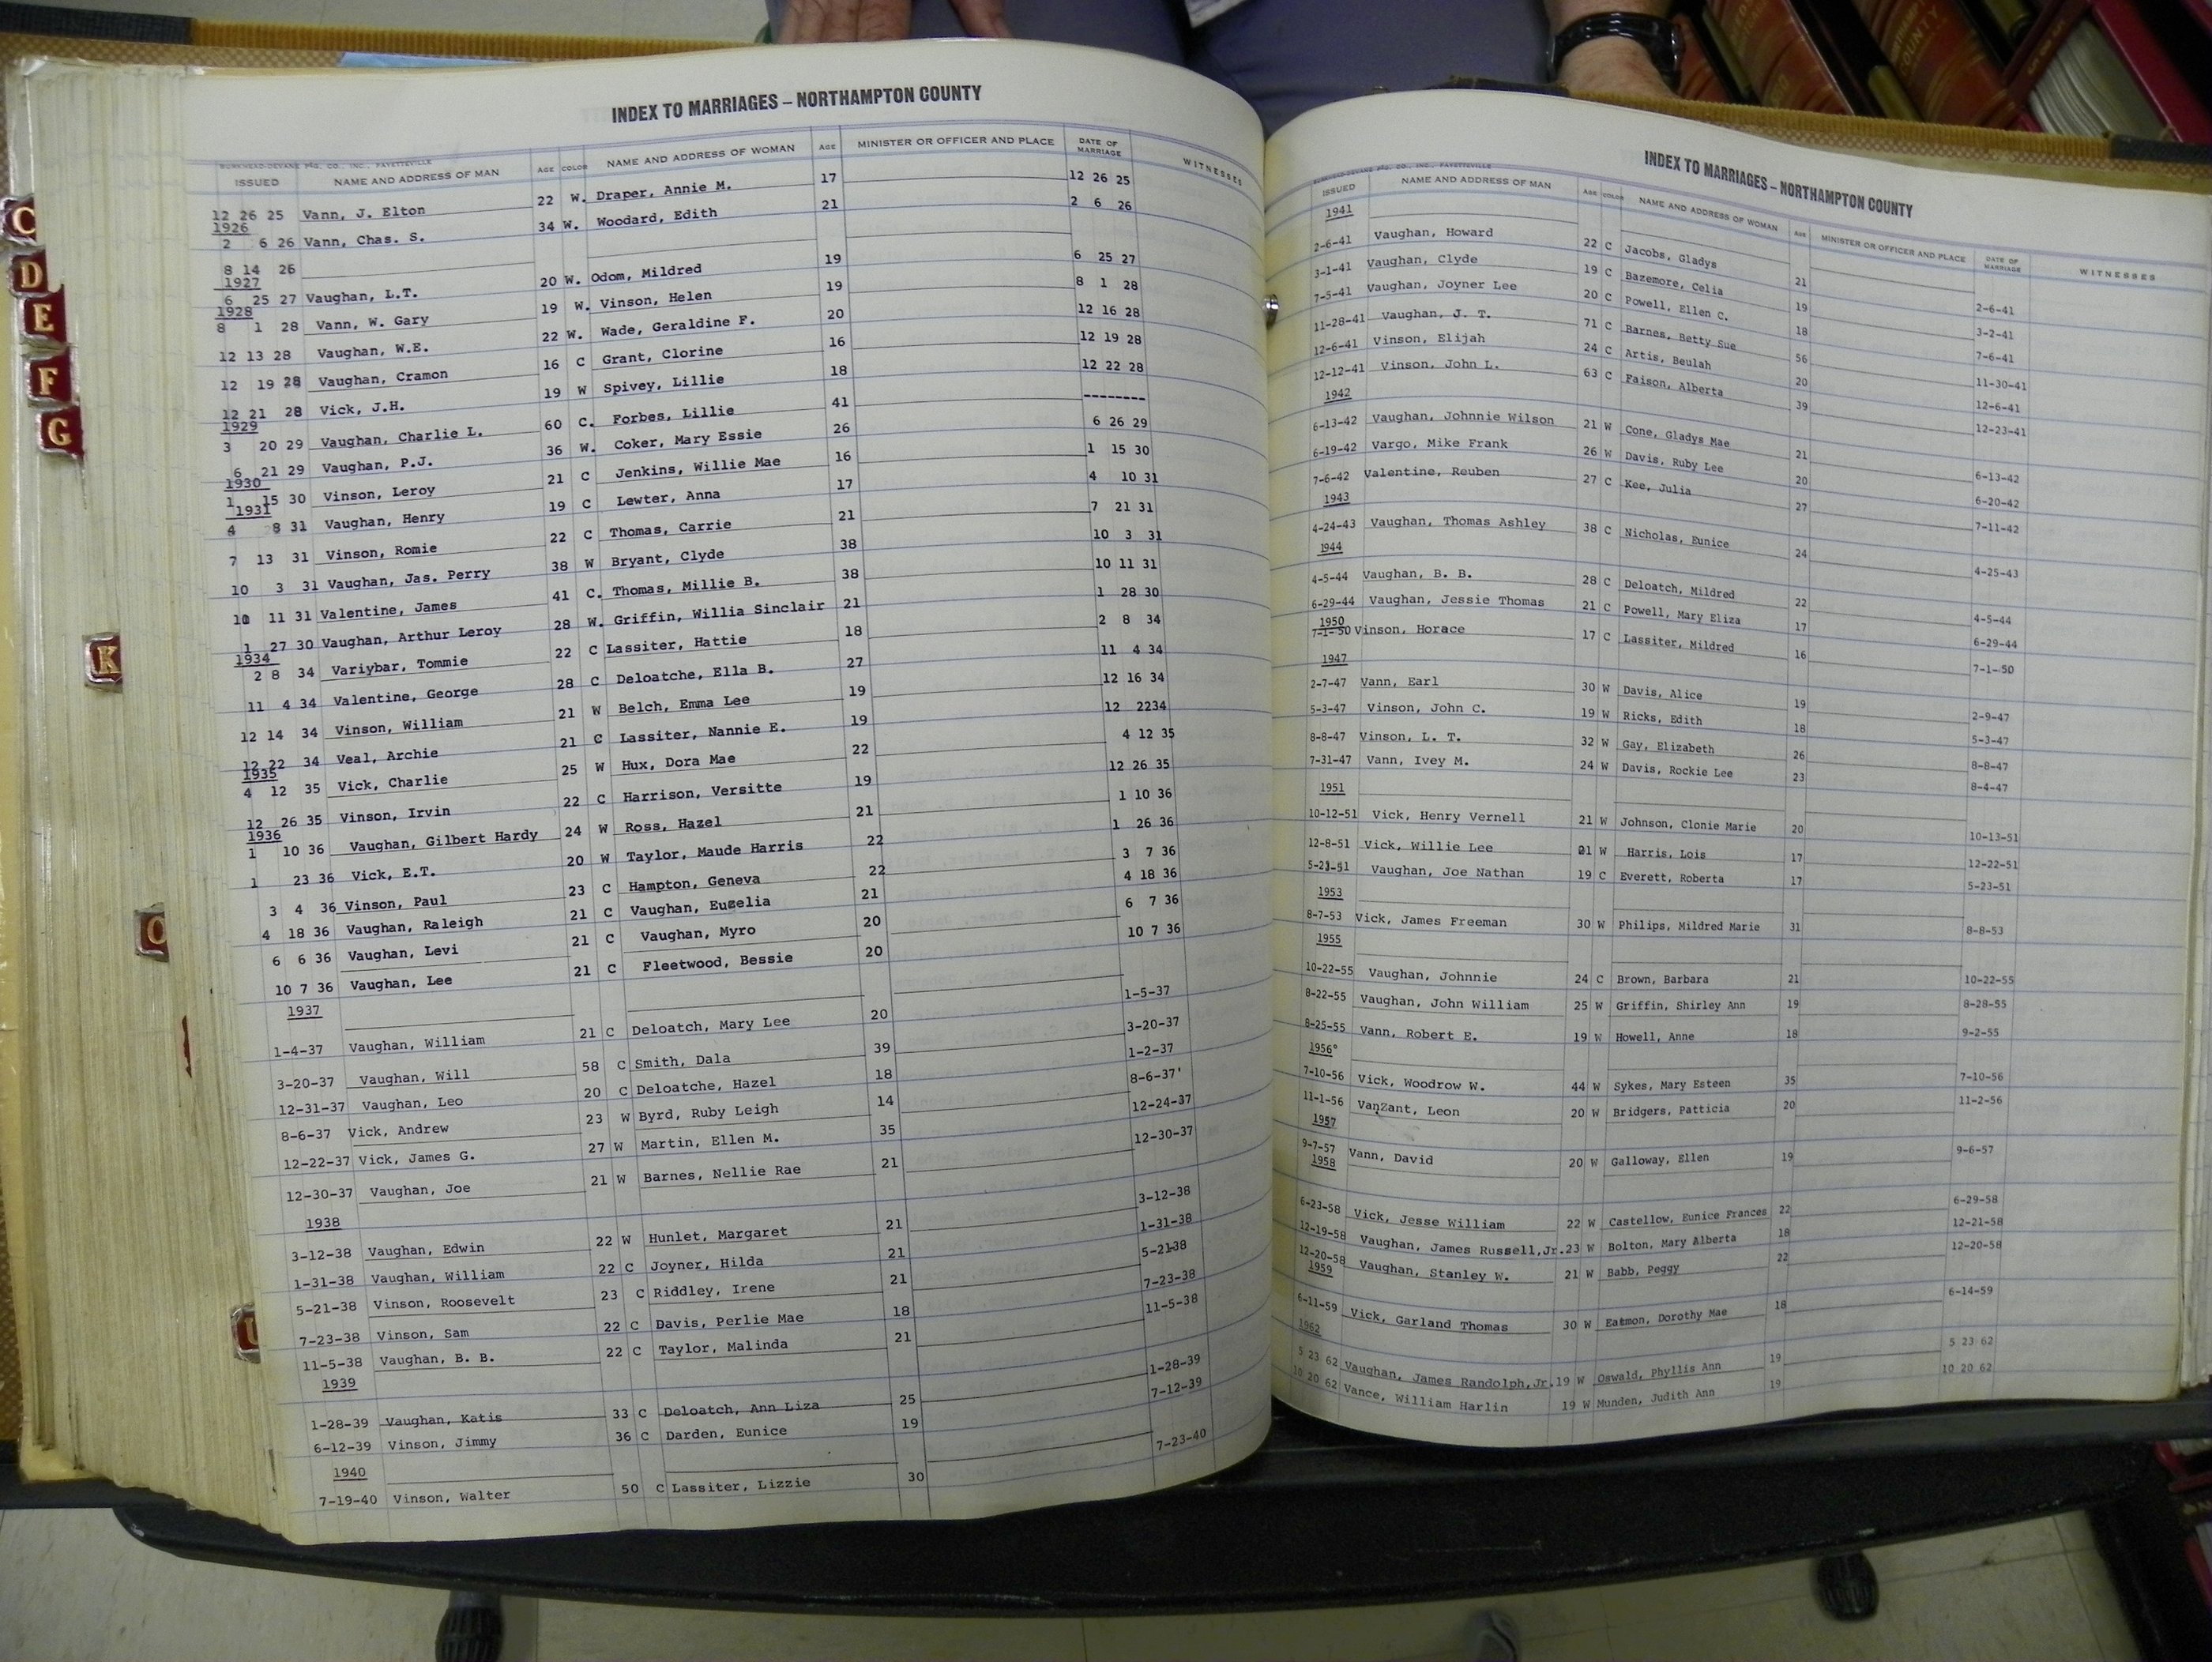 INDEX TO MARRIAGES – NORTHAMPTON COUNTY
BURKHEAD-DEVANE PTG. CO., INC., FAYETTEVILLE
ISSUED NAME AND ADDRESS OF MAN AGE COLOR NAME AND ADDRESS OF WOMAN AGE MINISTER OR OFFICER AND PLACE DATE OF MARRIAGE WITNESSES
12 26 25 Vann, J. Elton 22 W. Draper, Annie M. 17 12 26 25
1926
2 6 26 Vann, Chas. S. 34 W. Woodard, Edith 21 2 6 26
8 14 26
1927
6 25 27 Vaughan, L.T. 20 W. Odom, Mildred 19 6 25 27
1928
8 1 28 Vann, W. Gary 19 W. Vinson, Helen 19 8 1 28
12 13 28 Vaughan, W.E. 22 W. Wade, Geraldine F. 20 12 16 28
12 19 28 Vaughan, Cramon 16 C Grant, Clorine 16 12 19 28
12 21 28 Vick, J.H. 19 W Spivey, Lillie 18 12 22 28
1929
3 20 29 Vaughan, Charlie L. 60 C. Forbes, Lillie 41 --------
6 21 29 Vaughan, P.J. 36 W. Coker, Mary Essie 26 6 26 29
1930
1 15 30 Vinson, Leroy 21 C Jenkins, Willie Mae 16 1 15 30
1931
4 8 31 Vaughan, Henry 19 C Lewter, Anna 17 4 10 31
7 13 31 Vinson, Romie 22 C Thomas, Carrie 21 7 21 31
10 3 31 Vaughan, Jas. Perry 38 W Bryant, Clyde 38 10 3 31
10 11 31 Valentine, James 41 C. Thomas, Millie B. 38 10 11 31
1 27 30 Vaughan, Arthur Leroy 28 W. Griffin, Willia Sinclair 21 1 28 30
1934
2 8 34 Variybar, Tommie 22 C Lassiter, Hattie 18 2 8 34
11 4 34 Valentine, George 28 C Deloatche, Ella B. 27 11 4 34
12 14 34 Vinson, William 21 W Belch, Emma Lee 19 12 16 34
12 22 34 Veal, Archie 21 C Lassiter, Nannie E. 19 12 2234
1935
4 12 35 Vick, Charlie 25 W Hux, Dora Mae 22 4 12 35
12 26 35 Vinson, Irvin 22 C Harrison, Versitte 19 12 26 35
1936
1 10 36 Vaughan, Gilbert Hardy 24 W Ross, Hazel 21 1 10 36
1 23 36 Vick, E.T. 20 W Taylor, Maude Harris 22 1 26 36
3 4 36 Vinson, Paul 23 C Hampton, Geneva 22 3 7 36
4 18 36 Vaughan, Raleigh 21 C Vaughan, Euzelia 21 4 18 36
6 6 36 Vaughan, Levi 21 C Vaughan, Myro 20 6 7 36
10 7 36 Vaughan, Lee 21 C Fleetwood, Bessie 20 10 7 36
1937
1-4-37 Vaughan, William 21 C Deloatch, Mary Lee 20 1-5-37
3-20-37 Vaughan, Will 58 C Smith, Dala 39 3-20-37
12-31-37 Vaughan, Leo 20 C Deloatche, Hazel 18 1-2-37
8-6-37 Vick, Andrew 23 W Byrd, Ruby Leigh 14 8-6-37'
12-22-37 Vick, James G. 27 W Martin, Ellen M. 35 12-24-37
12-30-37 Vaughan, Joe 21 W Barnes, Nellie Rae 21 12-30-37
1938
3-12-38 Vaughan, Edwin 22 W Hunlet, Margaret 21 3-12-38
1-31-38 Vaughan, William 22 C Joyner, Hilda 21 1-31-38
5-21-38 Vinson, Roosevelt 23 C Riddley, Irene 21 5-2138
7-23-38 Vinson, Sam 22 C Davis, Perlie Mae 18 7-23-38
11-5-38 Vaughan, B. B. 22 C Taylor, Malinda 21 11-5-38
1939
1-28-39 Vaughan, Katis 33 C Deloatch, Ann Liza 25 1-28-39
6-12-39 Vinson, Jimmy 36 C Darden, Eunice 19 7-12-39
1940
7-19-40 Vinson, Walter 50 C Lassiter, Lizzie 30 7-23-40
C
D
E
F
G
K
O
INDEX TO MARRIAGES – NORTHAMPTON COUNTY
BURKHEAD-DEVANE PTG. CO., INC., FAYETTEVILLE
ISSUED NAME AND ADDRESS OF MAN AGE COLOR NAME AND ADDRESS OF WOMAN AGE MINISTER OR OFFICER AND PLACE DATE OF MARRIAGE WITNESSES
1941
2-6-41 Vaughan, Howard 22 C Jacobs, Gladys 21 2-6-41
3-1-41 Vaughan, Clyde 19 C Bazemore, Celia 19 3-2-41
7-5-41 Vaughan, Joyner Lee 20 C Powell, Ellen C. 18 7-6-41
11-28-41 Vaughan, J. T. 71 C Barnes, Betty Sue 56 11-30-41
12-6-41 Vinson, Elijah 24 C Artis, Beulah 20 12-6-41
12-12-41 Vinson, John L. 63 C Faison, Alberta 39 12-23-41
1942
6-13-42 Vaughan, Johnnie Wilson 21 W Cone, Gladys Mae 21 6-13-42
6-19-42 Vargo, Mike Frank 26 W Davis, Ruby Lee 20 6-20-42
7-6-42 Valentine, Reuben 27 C Kee, Julia 27 7-11-42
1943
4-24-43 Vaughan, Thomas Ashley 38 C Nicholas, Eunice 24 4-25-43
1944
4-5-44 Vaughan, B. B. 28 C Deloatch, Mildred 22 4-5-44
6-29-44 Vaughan, Jessie Thomas 21 C Powell, Mary Eliza 17 6-29-44
1950
7-1-50 Vinson, Horace 17 C Lassiter, Mildred 16 7-1-50
1947
2-7-47 Vann, Earl 30 W Davis, Alice 19 2-9-47
5-3-47 Vinson, John C. 19 W Ricks, Edith 18 5-3-47
8-8-47 Vinson, L. T. 32 W Gay, Elizabeth 26 8-8-47
7-31-47 Vann, Ivey M. 24 W Davis, Rockie Lee 23 8-4-47
1951
10-12-51 Vick, Henry Vernell 21 W Johnson, Clonie Marie 20 10-13-51
12-8-51 Vick, Willie Lee 21 W Harris, Lois 17 12-22-51
5-23-51 Vaughan, Joe Nathan 19 C Everett, Roberta 17 5-23-51
1953
8-7-53 Vick, James Freeman 30 W Philips, Mildred Marie 31 8-8-53
1955
10-22-55 Vaughan, Johnnie 24 C Brown, Barbara 21 10-22-55
8-22-55 Vaughan, John William 25 W Griffin, Shirley Ann 19 8-28-55
8-25-55 Vann, Robert E. 19 W Howell, Anne 18 9-2-55
1956°
7-10-56 Vick, Woodrow W. 44 W Sykes, Mary Esteen 35 7-10-56
11-1-56 VanZant, Leon 20 W Bridgers, Patticia 20 11-2-56
1957
9-7-57 Vann, David 20 W Galloway, Ellen 19 9-6-57
1958
6-23-58 Vick, Jesse William 22 W Castellow, Eunice Frances 22 6-29-58
12-19-58 Vaughan, James Russell,Jr. 23 W Bolton, Mary Alberta 18 12-21-58
12-20-58 Vaughan, Stanley W. 21 W Babb, Peggy 22 12-20-58
1959
6-11-59 Vick, Garland Thomas 30 W Eatmon, Dorothy Mae 18 6-14-59
1962
5 23 62 Vaughan, James Randolph,Jr. 19 W Oswald, Phyllis Ann 19 5 23 62
10 20 62 Vance, William Harlin 19 W Munden, Judith Ann 19 10 20 62